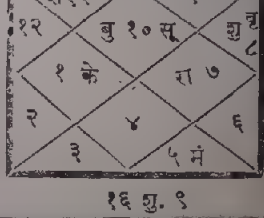 १२ बु १० सू शु
८
१ के रा ७
२ ४ ६
३ ५ मं
१६ गु. ९